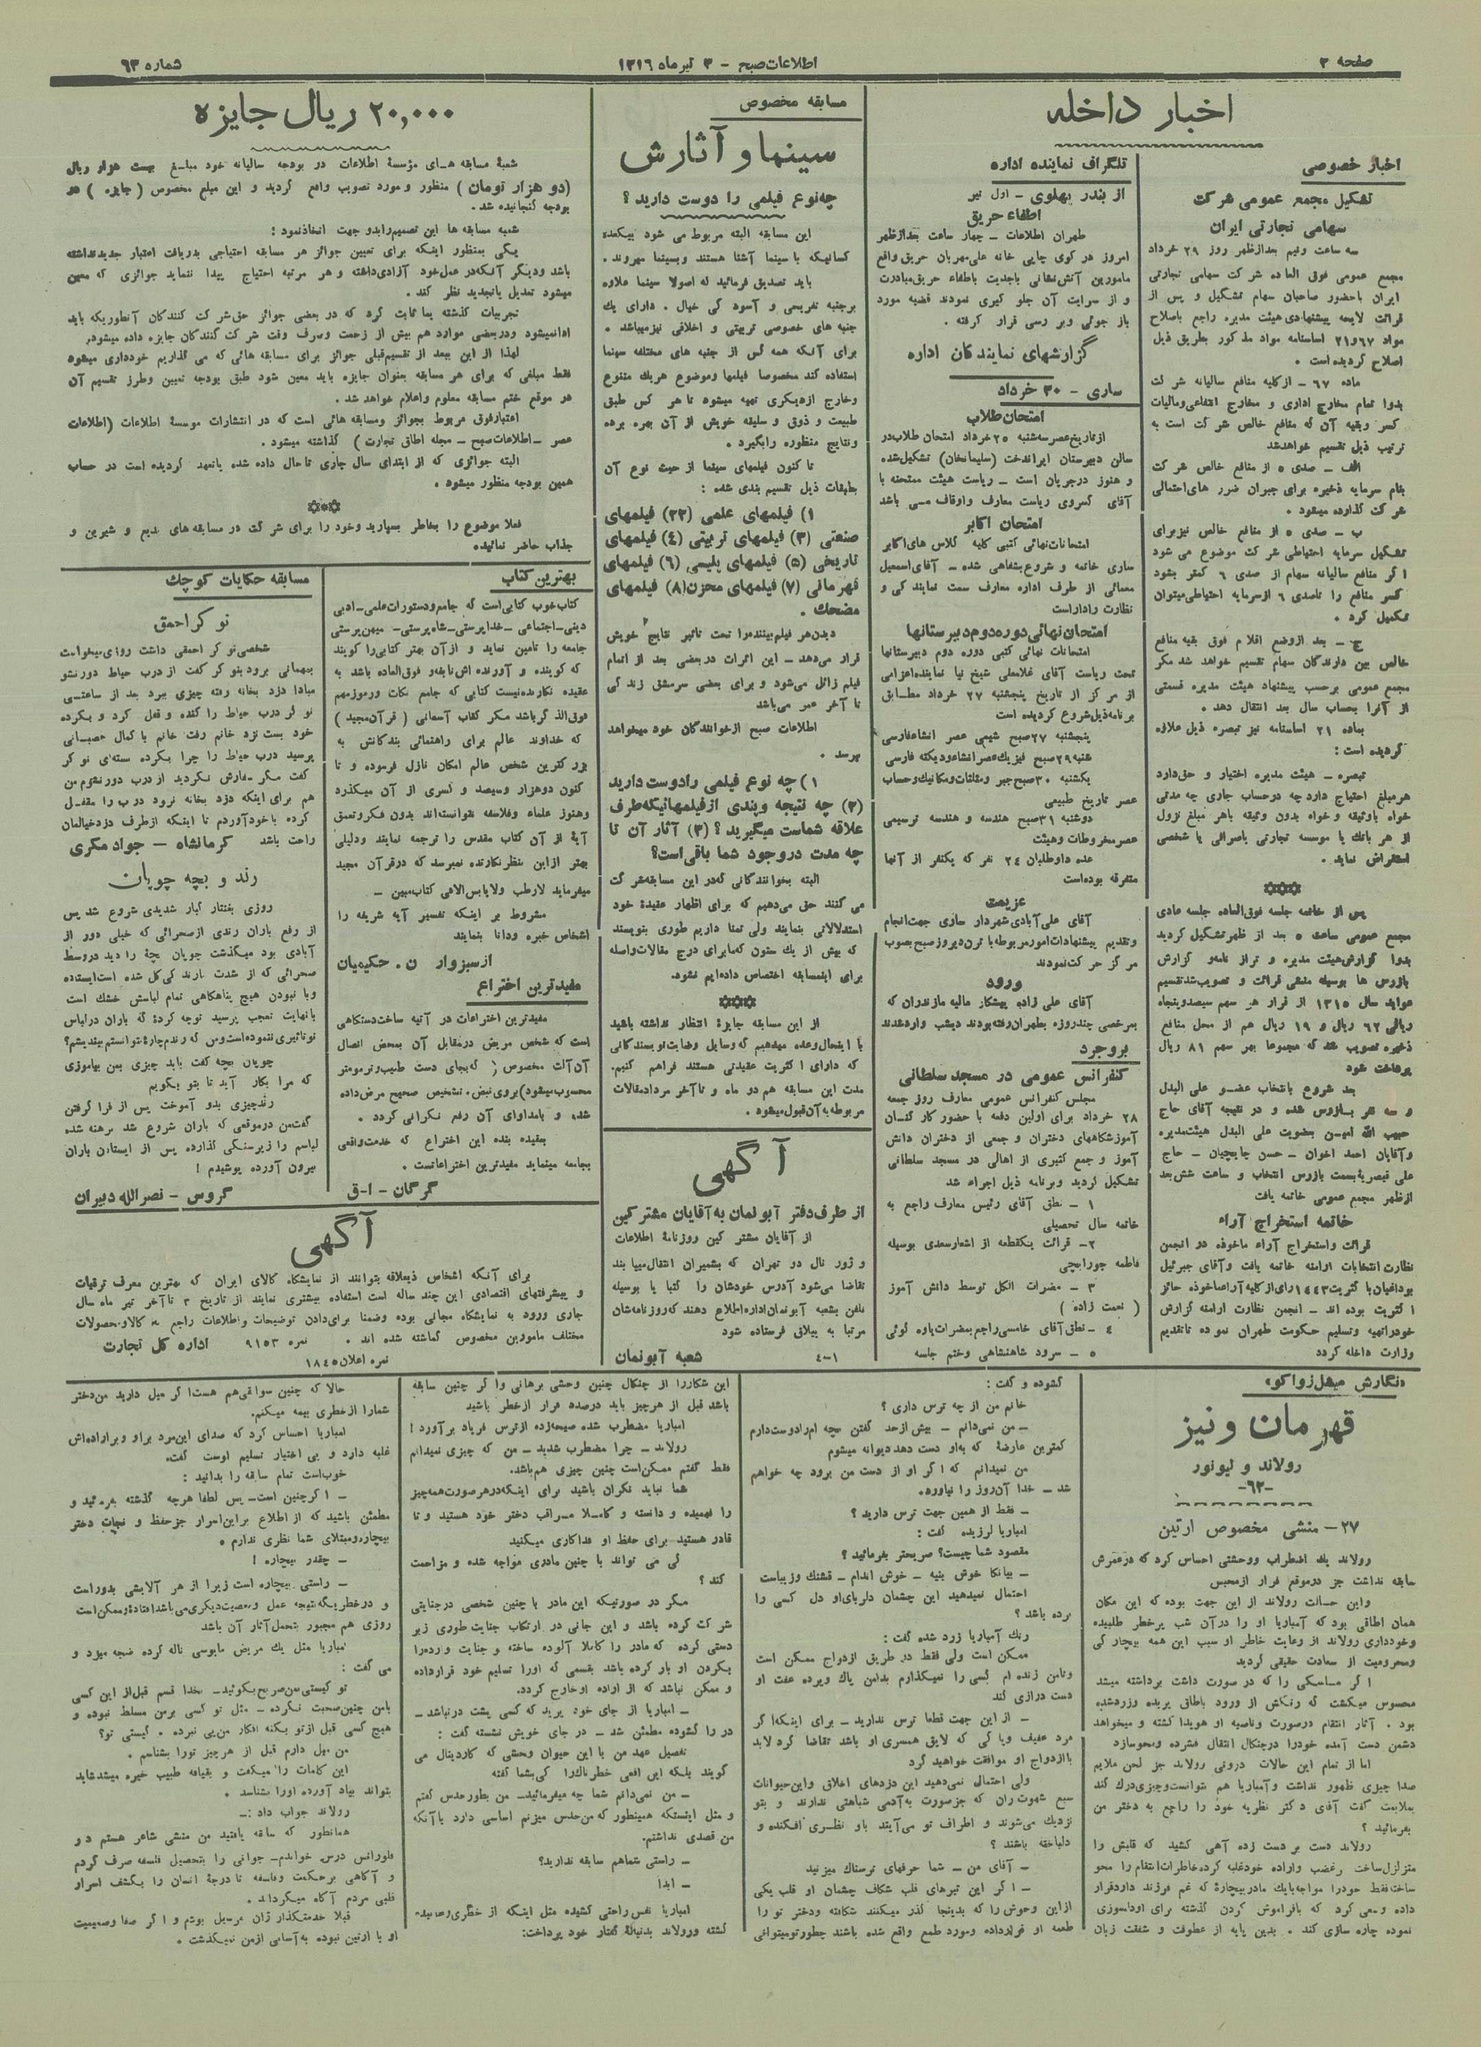 صفحه ۲
اطلاعات صبح – ۳ تیر ماه ۱۳۱۶
شماره ۶۳
اخبار داخله
اخبار خصوصی
تشکیل مجمع عمومی شرکت
سهامی تجارتی ایران
سه ساعت ونیم بعدازظهر روز ۲۹ خرداد
مجمع عمومی فوق العاده شرکت سهامی تجارتی
ایران باحضور صاحبان سهام تشکیل و پس از
قرائت لایحه پیشنهادی هیئت مدیره راجع باصلاح
مواد ۶۷و۲۱ اساسنامه مواد مذکور بطریق ذیل
اصلاح گردیده است.
ماده ۶۷ – از کلیه منافع سالیانه شرکت
بدوا تمام مخارج اداری و مخارج انتفاعی ومالیات
کسر وبقیه آن که منافع خالص شرکت است به
ترتیب ذیل تقسیم خواهدشد
الف – صدی ۵ از منافع خالص شرکت
بنام سرمایه ذخیره برای جبران ضرر های احتمالی
شرکت گذارده میشود.
ب – صدی ۵ از منافع خالص نیز برای
تشکیل سرمایه احتیاطی شرکت موضوع می شود
اگر منافع سالیانه سهام از صدی ۶ کمتر بشود
کسر منافع را تاصدی ۶ ازسرمایه احتیاطی میتوان
تکمیل کرد.
ج – بعد ازوضع اقلام فوق بقیه منافع
خالص بین دارندگان سهام تقسیم خواهد شد مگر
مجمع عمومی برحسب پیشنهاد هیئت مدیره قسمتی
از آنرا بحساب سال بعد انتقال دهد.
بماده ۲۱ اساسنامه نیز تبصره ذیل علاوه
گردیده است:
تبصره – هیئت مدیره اختیار و حق دارد
هرمبلغ احتیاج دارد چه درحساب جاری چه مدتی
خواه باوثیقه و خواه بدون وثیقه باهر مبلغ نزول
از هر بانک یا موسسه تجارتی یاصرافی یا شخصی
استقراض نماید.
پس از خاتمه جلسه فوق‌العاده جلسه عادی
مجمع عمومی ساعت ۵ بعد از ظهر تشکیل گردید
بدوا گزارش هیئت مدیره و تراز نامه و گزارش
بازرس ها بوسیله منشی قرائت و تصویب شد تقسیم
عواید سال ۱۳۱۵ از قرار هر سهم سیصدوپنجاه
ریالی ۶۲ ریال و ۱۹ ریال هم از محل منافع
ذخیره تصویب شد که مجموعا بهر سهم ۸۱ ریال
پرداخت شود
بعد شروع بانتخاب عضو علی البدل
و سه نفر بازرس شده و در نتیجه آقای حاج
حبیب الله امین بعضویت علی البدل هیئت مدیره
وآقایان احمد اخوان – حسن چایچیان – حاج
علی قیصریه بسمت بازرس انتخاب و ساعت شش بعد
ازظهر مجمع عمومی خاتمه یافت
خاتمه استخراج آراء
قرائت واستخراج آراء ماخوذه در انجمن
نظارت انتخابات ارامنه خاتمه یافت وآقای جبرئیل
بوداغیان با کثریت ۱۴۴۳رای از کلیه آراء ماخوذه حائز
اکثریت بوده اند – انجمن نظارت ارامنه گزارش
خودرا تهیه و تسلیم حکومت طهران نموده تا تقدیم
وزارت داخله گردد
تلگراف نماینده اداره
از بندر پهلوی – اول تیر
اطفاء حریق
طهران اطلاعات – چهار ساعت بعدازظهر
امروز در کوی چایی خانه علی مهربان حریق واقع
مامورین آتش نشانی باجدیت باطفاء حریق مبادرت
و از سرایت آن جلو گیری نمودند قضیه مورد
باز جوئی وبر رسی قرار گرفته.
گزارشهای نمایندگان اداره
ساری – ۳۰ خرداد
امتحان طلاب
ازتاریخ عصر سه‌شنبه ۲۵خرداد امتحان طلاب در
سالن دبیرستان ایراندخت (سلیمانخان) تشکیل شده
و هنوز درجریان است – ریاست هیئت ممتحنه با
آقای کسروی ریاست معارف واوقاف می باشد
امتحان اکابر
امتحانات نهائی کتبی کلیه کلاس های اکابر
ساری خاتمه و شروع بشفاهی شده – آقای اسمعیل
معمائی از طرف اداره معارف سمت نمایندگی و
نظارت راداراست
امتحان نهائی دوره دوم دبیرستانها
امتحانات نهائی کتبی دوره دوم دبیرستانها
تحت ریاست آقای غلامعلی شیخ نیا نماینده اعزامی
از مرکز از تاریخ پنجشنبه ۲۷ خرداد مطابق
برنامه ذیل شروع گردیده است
پنجشنبه ۲۷صبح شیمی عصر انشاء فارسی
شنبه ۲۹صبح فیزیک عصر انشاء ودیکته فارسی
یکشنبه ۳۰صبح جبر ومثلثات ومکانیک وحساب
عصر تاریخ طبیعی
دوشنبه ۳۱صبح هندسه و هندسه ترسیمی
عصر مخروطات وهیئت
عده داوطلبان ۲۴ نفر که یکنفر از آنها
متفرقه بوده است
عزیمت
آقای علی آبادی شهردار ساری جهت انجام
وتقدیم پیشنهادات امور مربوطه با ترن دیروز صبح بصوب
مرکز حرکت نمودند
ورود
آقای علی زاده پیشکار مالیه مازندران که
بمرخصی چندروزه بطهران رفته بودند دیشب واردشدند
بروجرد
کنفرانس عمومی در مسجد سلطانی
مجلس کنفرانس عمومی معارف روز جمعه
۲۸ خرداد برای اولین دفعه با حضور کارکنان
آموزشگاههای دختران و جمعی از دختران دانش
آموز و جمع کثیری از اهالی در مسجد سلطانی
تشکیل گردید وبرنامه ذیل اجراء شد
۱ – نطق آقای رئیس معارف راجع به
خاتمه سال تحصیلی
۲- قرائت یکقطعه از اشعارسعدی بوسیله
فاطمه چورابچی
۳ – مضرات الکل توسط دانش آموز
( نعمت زاده )
۴ – نطق آقای خامسی راجع بمضرات یاوه گوئی
۵ – سرود شاهنشاهی وختم جلسه
مسابقه مخصوص
سینما و آثارش
چه نوع فیلمی را دوست دارید؟
این مسابقه البته مربوط می شود بیکعده
کسانیکه با سینما آشنا هستند وبسینما میروند.
باید تصدیق فرمائید که اصولا سینما علاوه
برجنبه تفریحی و آسودگی خیال. دارای یک
جنبه های خصوصی تربیتی و اخلاقی نیز میباشد.
برای آنکه همه کس از جنبه های مختلفه سینما
استفاده کند مخصوصا فیلمها وموضوع هریک متنوع
وخارج ازدیگری تهیه میشود تا هر کس طبق
طبیعت و ذوق و سلیقه خویش از آن بهره برده
ونتایج منظوره رابگیرد.
تا کنون فیلمهای سینما از حیث نوع آن
بطبقات ذیل تقسیم بندی شده:
۱) فیلمهای علمی (۲۲) فیلمهای
صنعتی (۳) فیلمهای تربیتی (۴) فیلمهای
تاریخی (۵) فیلمهای پلیسی (۶) فیلمهای
قهرمانی (۷) فیلمهای محزن(۸) فیلمهای
مضحک.
دیدن هر فیلم بیننده را تحت تأثیر نتایج خویش
قرار می‌دهد – این اثرات در بعضی بعد از اتمام
فیلم زائل می‌شود و برای بعضی سرمشق زندگی
تا آخر عمر می‌باشد
اطلاعات صبح ازخوانندگان خود میخواهد
بپرسد.
۱) چه نوع فیلمی رادوست دارید
(۲) چه نتیجه وپندی از فیلمهائیکه طرف
علاقه شماست میگیرید؟ (۳) آثار آن تا
چه مدت دروجود شما باقی است؟
البته بخوانندگانی که در این مسابقه شرکت
می کنند حق می‌دهیم که برای اظهار عقیدهٔ خود
استدلالاتی بنمایند ولی تمنا داریم طوری بنویسند
که بیش از یک ستون که مابرای درج مقالات واصله
برای اینمسابقه اختصاص داده‌ایم نشود.
از این مسابقه جایزهٔ انتظار نداشته باشید
با اینحال وعده میدهیم که وسایل رضایت نویسندگانی
که دارای اکثریت عقیدتی هستند فراهم کنیم.
مدت این مسابقه هم دو ماه و تاآخر مرداد مقالات
مربوطه به آن قبول میشود.
آگهی
از طرف دفتر آبونمان به آقایان مشترکین
از آقایان مشترکین روزنامهٔ اطلاعات
و ژورنال دو تهران که بشمیران انتقال مییابند
تقاضا می‌شود آدرس خودشان را کتبا یا بوسیله
تلفن بشعبه آبونمان اداره اطلاع دهند که روزنامه‌شان
مرتبا به ییلاقی فرستاده شود
۴-۱
شعبه آبونمان
۲۰,۰۰۰ ریال جایزه
شعبهٔ مسابقه های مؤسسهٔ اطلاعات در بودجه سالیانه خود مبلغ بیست هزار ریال
(دو هزار تومان) منظور و مورد تصویب واقع گردید و این مبلغ مخصوص (جایزه) در
بودجه گنجانیده شد.
شعبه مسابقه ها این تصمیم رابدو جهت اتخاذنمود:
یکی بمنظور اینکه برای تعیین جوائز هر مسابقه احتیاجی بدریافت اعتبار جدیدنداشته
باشد ودیگر آنکه در عمل خود آزادی داشته و هر مرتبه احتیاج پیدا ننماید جوائزی که معین
میشود تعدیل یاتجدید نظر کند.
تجربیات گذشته بما ثابت کرد که در بعضی جوائز حق شرکت کنندگان آنطوریکه باید
ادانمیشود ودربعضی موارد هم بیش از زحمت وصرف وقت شرکت کنندگان جایزه داده میشود.
لهذا از این ببعد از تقسیم قبلی جوائز برای مسابقه هائی که می گذاریم خودداری میشود
فقط مبلغی که برای هر مسابقه بعنوان جایزه باید معین شود طبق بودجه تعیین وطرز تقسیم آن
در موقع ختم مسابقه معلوم واعلام خواهد شد.
اعتبارفوق مربوط بجوائز ومسابقه هائی است که در انتشارات موسسهٔ اطلاعات (اطلاعات
عصر – اطلاعات صبح – مجله اطاق تجارت) گذاشته میشود.
البته جوائزی که از ابتدای سال جاری تاحال داده شده یاتعهد گردیده است در حساب
همین بودجه منظور میشود.
فعلا موضوع را بخاطر بسپارید وخود را برای شرکت در مسابقه های بدیع و شیرین و
جذاب حاضر نمائید.
بهترین کتاب
کتاب خوب کتابی است که جامع ودستورات علمی – ادبی
دینی – اجتماعی – خداپرستی – شاه پرستی – میهن پرستی
جامعه را تامین نماید و از آن بهتر کتابی را گویند
که گوینده و آورنده اش نابغه و فوق‌العاده باشد به
عقیده نگارنده نیست کتابی که جامع نکات ورموز مهم
فوق الذکر باشد مگر کتاب آسمانی (قرآن مجید)
که خداوند عالم برای راهنمائی بندگانش به
بزرگترین شخص عالم امکان نازل فرموده و تا
کنون دوهزار وسیصد و کسری از آن میگذرد
وهنوز علماء وفلاسفه نتوانسته‌اند بدون فکر وتعمق
آیهٔ از آن کتاب مقدس را ترجمه نمایند ودلیلی
بهتر ازاین منظر نگارنده نمیرسد که در قرآن مجید
میفرماید لارطب ولایابس الافی کتاب مبین –
مشروط بر اینکه تفسیر آیه شریفه را
اشخاص خبره ودانا بنمایند
از سبزوار ن. حکیمیان
مفیدترین اختراع
مفیدترین اختراعات در آتیه ساخت دستگاهی
است که شخص مریض درمقابل آن بمحض اتصال
آن آلت مخصوص (که بجای دست طبیب و ترمومتر
محسوب میشود) بروی نبض. تشخیص صحیح مرض داده
شده و بامداوای آن رفع نگرانی گردد.
بعقیده بنده این اختراع که خدمت واقعی
بجامعه مینماید مفیدترین اختراعاتست.
گرگان – ا-ق
مسابقه حکایات کوچک
نوکر احمق
شخصی نوکر احمقی داشت روزی میخواست
بمهمانی برود بنوکر گفت از درب حیاط دور نشو
مبادا دزد بخانه رفته چیزی ببرد بعد از ساعتی
نوکر درب حیاط را کنده و قفل کرد و بگرده
خود بست نزد خانم رفت خانم با کمال عصبانی
پرسید درب حیاط را چرا بگرده بسته‌ای نوکر
گفت مگر سفارش نکردید از درب دور نشوم من
هم برای اینکه دزد بخانه نرود درب را مقفل
کرده با خود آوردم تا اینکه ازطرف دزدخیالمان
راحت باشد
کرمانشاه – جواد مکری
رند و بچه چوپان
روزی بغتتا رگبار شدیدی شروع شد پس
از رفع باران رندی ازصحرائی که خیلی دور از
آبادی بود میگذشت چوپان بچهٔ را دید در وسط
صحرائی که از شدت بارندگی گل شده است ایستاده
وبا نبودن هیچ پناهگاهی تمام لباسش خشک است
بانهایت تعجب پرسید توچه کردهٔ که باران درلباس
تو تاثیری ننموده است ومن که رندم چارهٔ نتوانستم بیندیشم؟
چوپان بچه گفت باید چیزی بمن بیاموزی
که مرا بکار آید تا بتو بگویم
رند چیزی بدو آموخت پس از فرا گرفتن
گفت من درموقعی که باران شروع شد برهنه شده
لباسم را زیر سنگی گذارده پس از ایستادن باران
بیرون آورده پوشیدم!
گروس – نصر الله دبیران
آگهی
برای آنکه اشخاص ذیعلاقه بتوانند از نمایشگاه کالای ایران که بهترین معرف ترقیات
و پیشرفتهای اقتصادی این چند ساله است استفاده بیشتری نمایند از تاریخ ۳ تاآخر تیر ماه سال
جاری ورود به نمایشگاه مجانی بوده وضمنا برای دادن توضیحات واطلاعات راجع به کالاومحصولات
مختلف مامورین مخصوص گماشته شده اند.
نمره ۹۱۵۳
اداره کل تجارت
نمره اعلان ۱۸۴۵
«نگارش میشل زواکو»
قهرمان ونیز
رولاند و لیونور
-۶۳-
۲۷ – منشی مخصوص آرتین
رولاند یک اضطراب ووحشتی احساس کرد که در عمرش
سابقه نداشت جز درموقع فرار ازمحبس
واین حالت رولاند از این جهت بوده که این مکان
همان اطاقی بود که آمباریا او را در آن شب پرخطر طلبیده
وخودداری رولاند از رعایت خاطر او سبب این همه بیچارگی
ومحرومیت از سعادت حقیقی گردید
اگر ماسکی را که در صورت داشت برداشته میشد
محسوس میگشت که رنگش از ورود باطاق پریده وزردشده
بود. آثار انتقام درصورت وناصیه او هویدا گشته و میخواهد
دشمن دست آمده خودرا درچنگال انتقال فشرده ومحوسازد
اما از تمام این حالات درونی رولاند جز لحن ملایم
صدا چیزی ظهور نداشت و آمباریا هم نتوانست وچیزی درک کند
بملایمت گفت آقای دکتر نظریه خود را راجع به دختر من
بفرمائید؟
رولاند دست بر دست زده آهی کشید که قلبش را
متزلزل ساخت رغضب واراده خودغلبه کرده خاطرات انتقام را محو
ساخت فقط خودرا مواجه بایک مادر بیچارهٔ که غم فرزند دارد قرار
داده و سعی کرد که بافراموش کردن گذشته برای او دلسوزی
نموده چاره سازی کند. بدین پایه از عطوفت و شفقت زبان
گشوده و گفت:
خانم من از چه ترس داری؟
– من نمی‌دانم – بیش ازحد گفتن بچه ام رادوست دارم
کمترین عارضهٔ که به او دست دهد دیوانه میشوم
من نمیدانم که اگر او از دست من برود چه خواهم
شد – خدا آن روز را نیاورد.
– فقط از همین جهت ترس دارید؟
امباریا لرزیده گفت:
مقصود شما چیست؟ صریحتر بفرمائید؟
– بیانکا خوش بنیه – خوش اندام – قشنگ وزیباست
احتمال نمیدهید این چشمان دلربای او دل کسی را
برده باشد؟
رنگ آمباریا زرد شده گفت:
ممکن است ولی فقط در طریق ازدواج ممکن است
وتامن زنده ام کسی را نمیگذارم بدامن پاک وپرده عفت او
دست درازی کند
– از این جهت قطعا ترس ندارید – برای اینکه اگر
مرد عفیف وپاکی که لایق همسری او باشد تقاضا کرد لابد
باازدواج او موافقت خواهید کرد
ولی احتمال نمی‌دهید این دزدهای اخلاق واین حیوانات
سبع شهوت‌ران که جز صورت به آدمی شباهتی ندارند و بتو
نزدیک می‌شوند و اطراف تو می‌آیند باو نظری افکنده و
دلباخته باشند؟
– آقای من – شما حرفهای ترسناک میزنید
– اگر این تیرهای قلب شکاف چشمان او قلب یکی
ازاین وحوش را که بدینجا گذر میکنند شکافته ودختر تو را
طعمه او قرارداده ومورد طمع واقع شده باشند چطور تومیتوانی
این شکاررا از چنگال چنین وحشی برهانی واگر چنین سابقه
باشد قبل از هرچیز باید درصدد فرار ازخطر باشید
امباریا مضطرب شده صیحه‌زده ازترس فریاد بر آورد!
رولاند – چرا مضطرب شدید – من که چیزی نمیدانم
فقط گفتم ممکن است چنین چیزی هم باشد.
شما نباید نگران باشید برای اینکه درهر صورت همه چیز
را فهمیده و دانسته و کاملا مراقب دختر خود هستید و تا
قادر هستید برای حفظ او فداکاری میکنید
کی می تواند با چنین مادری مواجه شده و مزاحمت
کند؟
مگر در صورتیکه این مادر با چنین شخصی درجنایتی
شرکت کرده باشد و این جانی در ارتکاب جنایت طوری زبر
دستی کرده که مادر را کاملا آلوده ساخته و جنایت وارده را
بگردن او بار کرده باشد بقسمی که اورا تسلیم خود قرارداده
و ممکن نباشد که از اراده او خارج گردد.
– امباریا از جای خود پرید که کسی پشت درنباشد –
در را گشوده مطمئن شد – در جای خویش نشسته گفت:
تفصیل عهد من با این حیوان وحشی که کاردینال می
گویند بلکه این افعی خطرناک را کی بشما گفته
– من نمی‌دانم شما چه میفرمائید – من بطور حدس گفتم
و مثل اینستکه همینطور که من حدس میزنم اساسی دارد با آنکه
من قصدی نداشتم.
– راستی شماهم سابقه ندارید؟
– ابدا
امباریا نفس راحتی کشیده مثل اینکه از خطری
گشته ورولاند بدنبالهٔ گفتار خود پرداخت:
حالا که چنین سوابقی هم هست اگر میل دارید من دختر
شمارا ازخطری بیمه میکنم.
امباریا احساس کرد که صدای این مرد براو وبراراده‌اش
غلبه دارد و بی اختیار تسلیم اوست گفت.
خوب است تمام سابقه را بدانید:
– اگر چنین است – پس لطفا هرچه گذشته بفرمائید و
مطمئن باشید که از اطلاع براین اسرار جز حفظ و نجات دختر
بیچاره ومبتلای شما نظری ندارم.
– چقدر بیچاره!
– راستی بیچاره است زیرا از هر آلایشی بدور است
و درخطریکه نتیجه عمل ومعصیت دیگری می‌باشد افتادهٔ وممکن است
روزی هم مجبور بتحمل آثار آن باشد
امباریا مثل یک مریض مایوسی ناله کرده ضجه میزد و
می گفت:
تو کیستی بمن صریح بگوئید – بخدا قسم قبل از این کسی
بامن چنین صحبت نکرده – مثل تو کسی برمن مسلط نبوده و
هیچ کسی قبل از تو بکنه افکار من پی نبرده. کیستی تو؟
من میل دارم قبل از هرچیز تورا بشناسم.
این کلمات را میگفت و بقیافه طبیب خیره میشد شاید
بتواند بیاد آورده اورا شناسد.
رولاند جواب داد: –
همانطور که سابقه یافتید من منشی شاعر هستم در
فلورانس درس خواندم – جوانی را بتحصیل فلسفه صرف کردم
و آگاهی برحکمت وفلسفه تادرجهٔ انسان را بکشف اسرار
قلبی مردم آگاه میگرداند.
قبلا خدمتگذار ژان مرسیل بودم و اگر صفا وصمیمیت
او با آرتین نبوده به آسانی ازمن نمیگذشت.